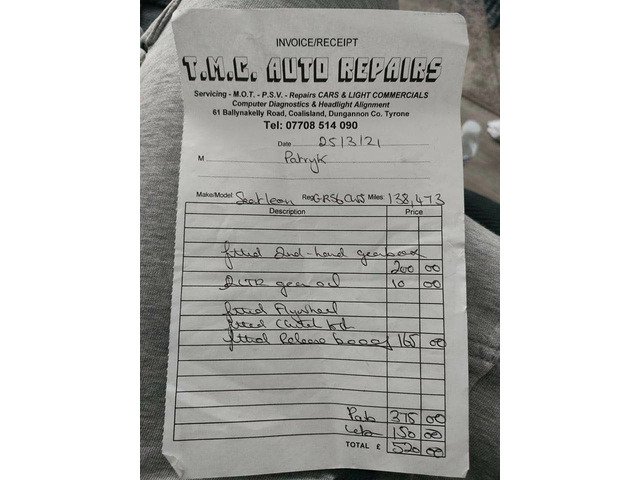 INVOICE/RECEIPT
T.M.C. AUTO REPAIRS
Servicing - M.O.T. - P.S.V. - Repairs CARS & LIGHT COMMERCIALS
Computer Diagnostics & Headlight Alignment
61 Ballynakelly Road, Coalisland, Dungannon Co. Tyrone
Tel: 07708 514 090
Date 25/3/21
M Patryk
Make/Model: Seat leon Reg: Miles: 138,473
Description Price
fitted 2nd-hand gearbox
200 00
2 LTR gear oil 10 00
fitted Flywheel
fitted Clutch kit
fitted Release 165 00
375 00
150 00
TOTAL £ 520 00